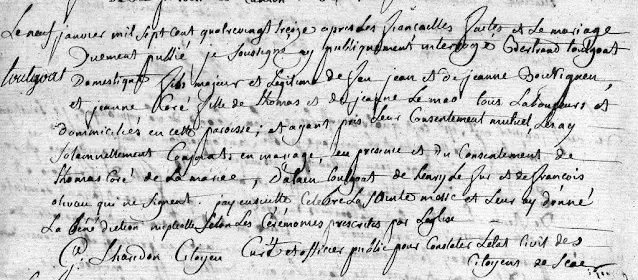 Le neuf janvier mil sept cent quatrevingt treize apres les fiançailles faites et le mariage
Duement publié je soussigné ay publiquement interrogé Bertrand toulgoat
toulgoat
Domestique fils majeur et legitime de feu jean et de jeanne
et jeanne Coré fille de thomas et de jeanne Le mao tous Laboureurs et
domiciliés en cette paroisse, et ayant pris leur Consentement mutuel, Les ay
solemnellement Conjoints en mariage, en presence et du Consentement de
thomas Coré de La mariee, d'alain toulgoat de henry Le fur et de francois
qui ne signent. jay ensuitte Celebré La Sainte messe et Leur ay donné
La bénédiction nuptialle Selon Les Cérémonies prescrites par Leglise
Chardon Citoyen Curé et officier public pour Constater Letat Civil des
Citoyens de Scaer